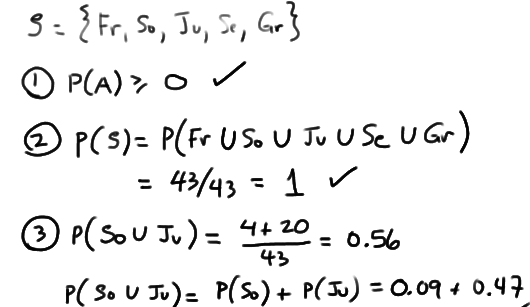 S = {Fr, So, Ju, Se, Gr}
① P(A) ≥ 0 ✓
② P(S) = P(Fr ∪ So ∪ Ju ∪ Se ∪ Gr)
= 43/43 = 1 ✓
③ P(So ∪ Ju) = (4+20)/43 = 0.56
P(So ∪ Ju) = P(So) + P(Ju) = 0.09 + 0.47